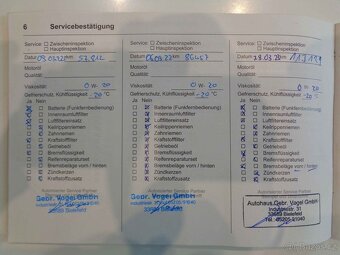 6 Servicebestätigung
Service: Zwischeninspektion
Hauptinspektion
Datum km
Motoröl
Qualität
Viskosität 0 W- 20
Gefrierschutz, Kühlflüssigkeit -20 °C
Ja Nein
Batterie (Funkfernbedienung)
Innenraumluftfilter
Luftfilter
Keilrippenriemen
Zahnriemen
Getriebeöl
Bremsflüssigkeit
Reifenreparaturset
Bremsbeläge vorn / hinten
Zündkerzen
Kraftstoffzusatz
Autorisierter Service Partner
Gebr. Vogel GmbH
33689 Bielefeld
Service: Zwischeninspektion
Hauptinspektion
Datum km
Motoröl
Qualität
Viskosität 0 W- 20
Gefrierschutz, Kühlflüssigkeit -20 °C
Ja Nein
Batterie (Funkfernbedienung)
Innenraumluftfilter
Luftfilter
Keilrippenriemen
Zahnriemen
Getriebeöl
Bremsflüssigkeit
Reifenreparaturset
Bremsbeläge vorn / hinten
Zündkerzen
Kraftstoffzusatz
Autorisierter Service Partner
Gebr. Vogel GmbH
33689 Bielefeld
Service: Zwischeninspektion
Hauptinspektion
Datum km
Motoröl
Qualität
Viskosität 0 W- 20
Gefrierschutz, Kühlflüssigkeit -20 °C
Ja Nein
Batterie (Funkfernbedienung)
Innenraumluftfilter
Luftfilter
Keilrippenriemen
Zahnriemen
Getriebeöl
Bremsflüssigkeit
Reifenreparaturset
Bremsbeläge vorn / hinten
Zündkerzen
Kraftstoffzusatz
Autorisierter Service Partner
Autohaus Gebr. Vogel GmbH
Industriestr. 31
33689 Bielefeld